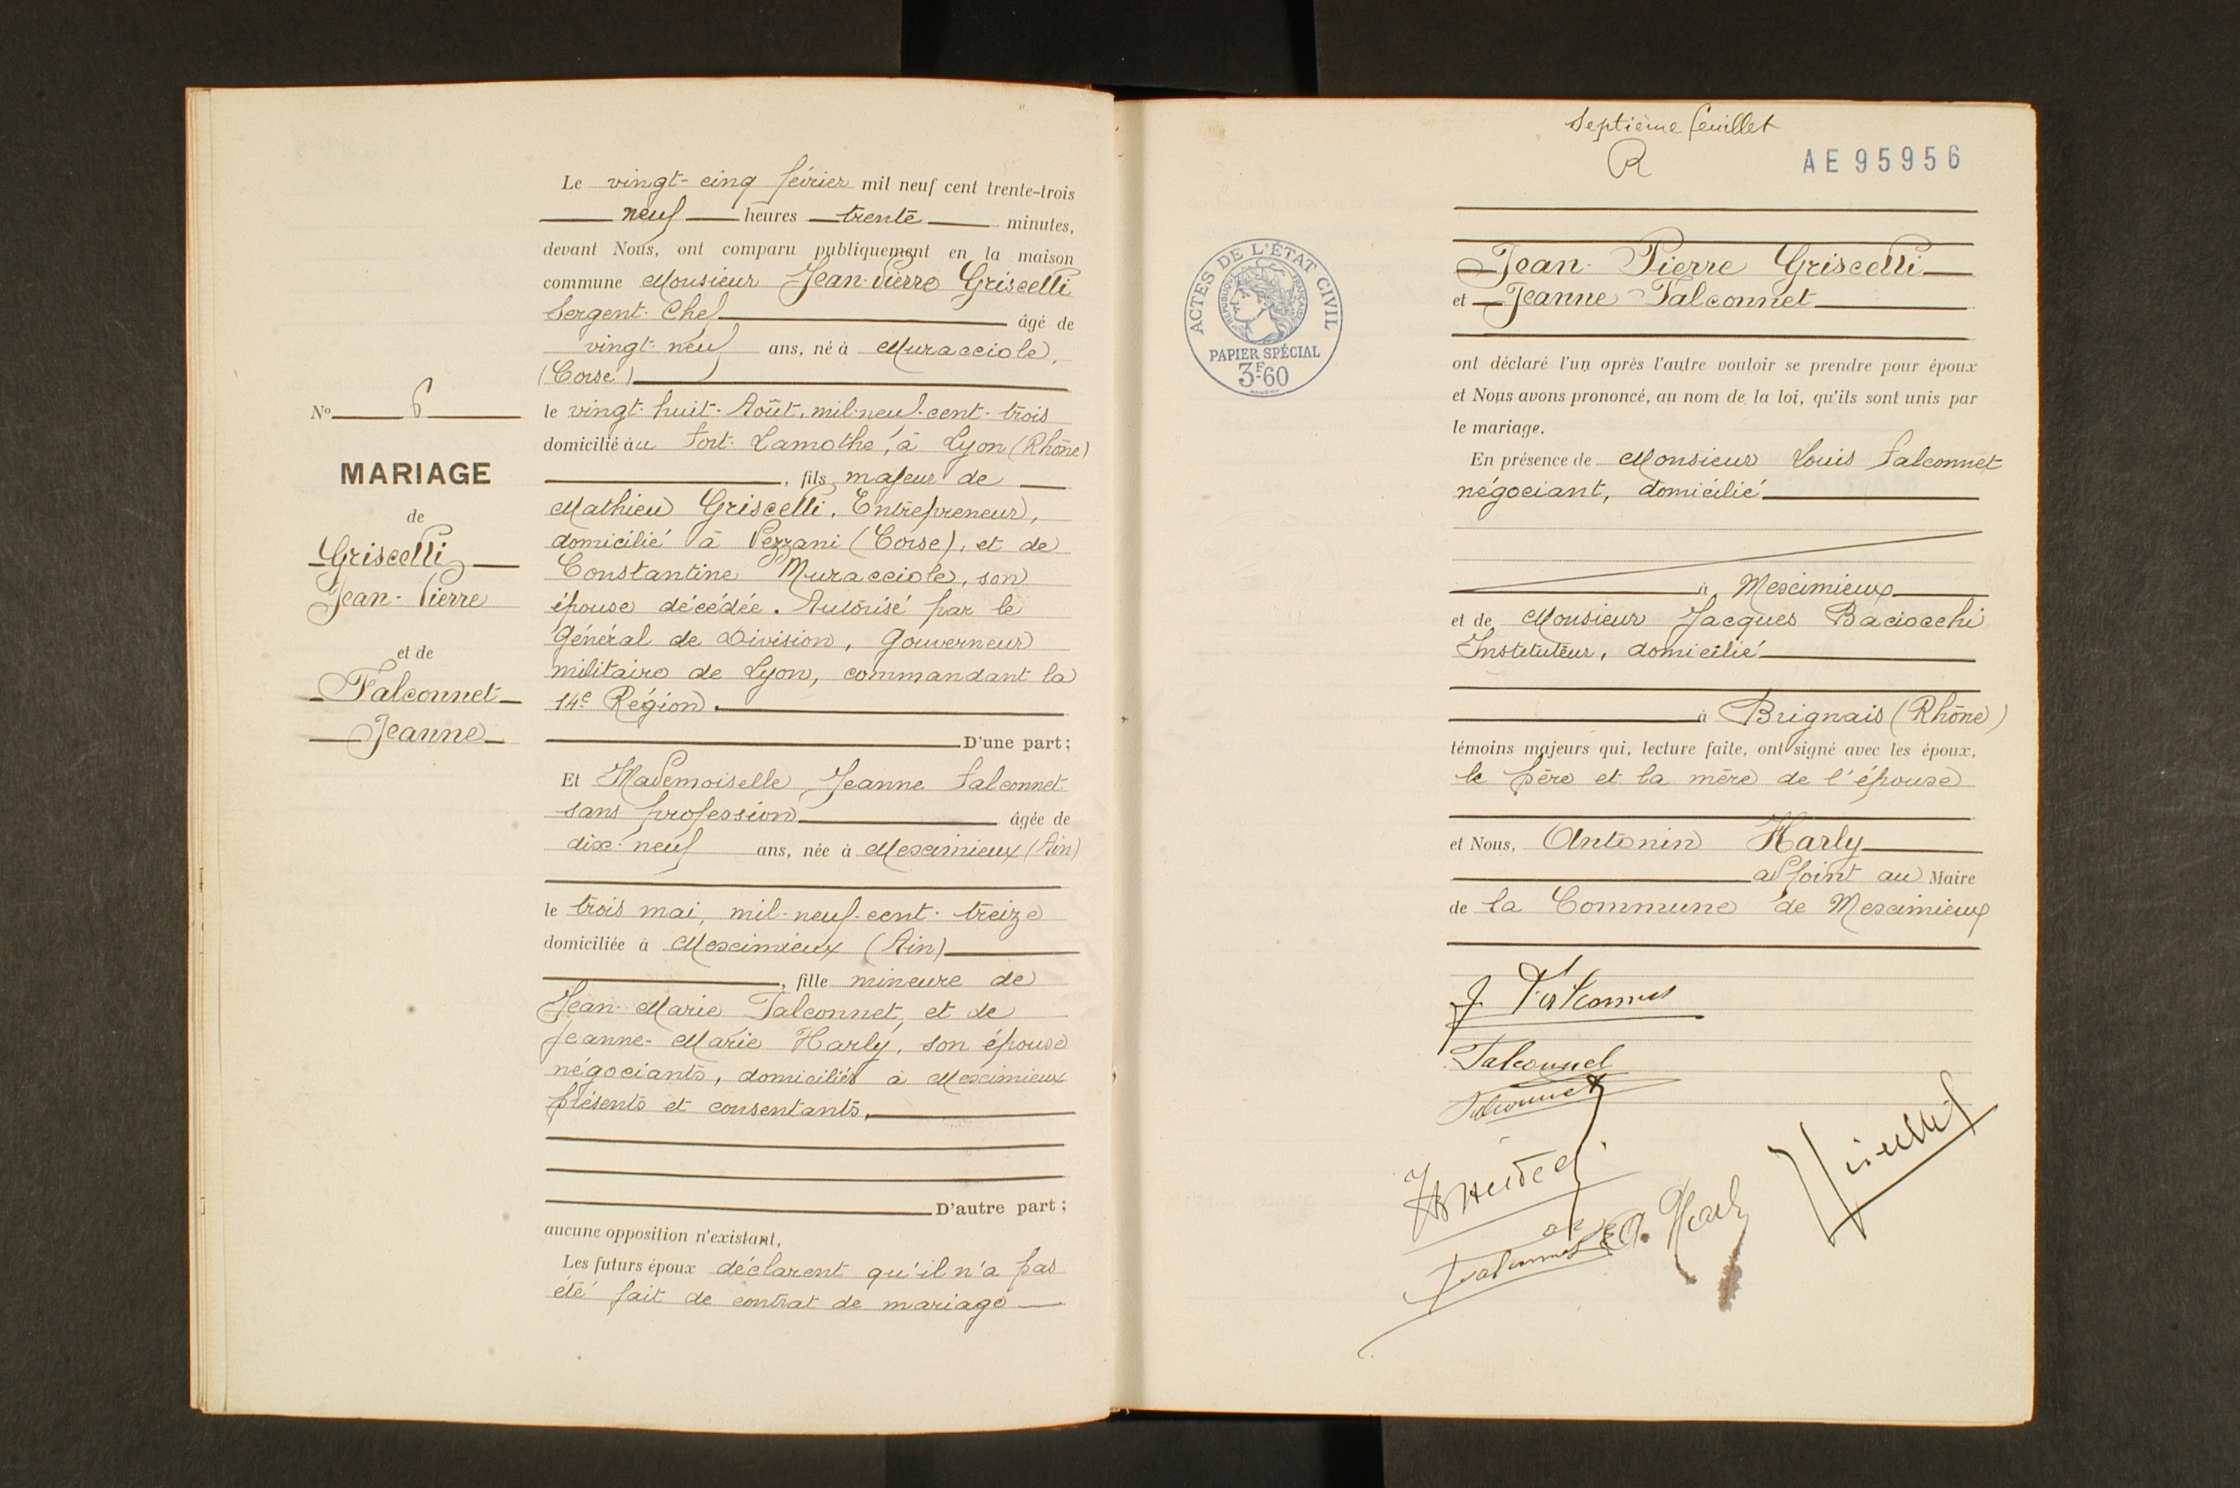 Le vingt-cinq février mil neuf cent trente-trois
neuf heures trente minutes,
devant Nous, ont comparu publiquement en la maison
commune Monsieur Jean-Pierre Griscelli
Sergent-Chef âgé de
vingt-neuf ans, né à Muracciole,
(Corse)
le vingt-huit-Août, mil-neuf-cent-trois
domicilié au Fort-Lamothe, à Lyon (Rhône)
, fils majeur de
Mathieu Griscelli, Entrepreneur,
domicilié à Pezzani (Corse), et de
Constantine Muracciole, son
épouse décédée. Autorisé par le
Général de Division, Gouverneur
militaire de Lyon, commandant la
14e Région.
D'une part;
Et Mademoiselle Jeanne Falconnet
sans profession âgée de
dix-neuf ans, née à Meximieux (Ain)
le trois mai, mil-neuf-cent-treize
domiciliée à Meximieux (Ain)
, fille mineure de
Jean-Marie Falconnet, et de
Jeanne-Marie Harly, son épouse
négociants, domiciliés à Meximieux
présents et consentants,
D'autre part;
aucune opposition n'existant,
Les futurs époux déclarent qu'il n'a pas
été fait de contrat de mariage
No 6
MARIAGE
de
Griscelli
Jean-Pierre
et de
Falconnet
Jeanne
Septième feuillet
R
AE 95956
ACTES DE L'ÉTAT CIVIL
RÉPUBLIQUE FRANÇAISE
PAPIER SPÉCIAL
3F.60
Jean-Pierre Griscelli
et Jeanne Falconnet
ont déclaré l'un après l'autre vouloir se prendre pour époux
et Nous avons prononcé, au nom de la loi, qu'ils sont unis par
le mariage.
En présence de Monsieur Louis Falconnet
négociant, domicilié
à Meximieux
et de Monsieur Jacques Baciocchi
Instituteur, domicilié
à Brignais (Rhône)
témoins majeurs qui, lecture faite, ont signé avec les époux,
le père et la mère de l'épouse
et Nous, Antonin Harly
adjoint au Maire
de la Commune de Meximieux
J. Falconnet
Falconnet
Falconnet
Falconnet
A. Harly
Griscelli